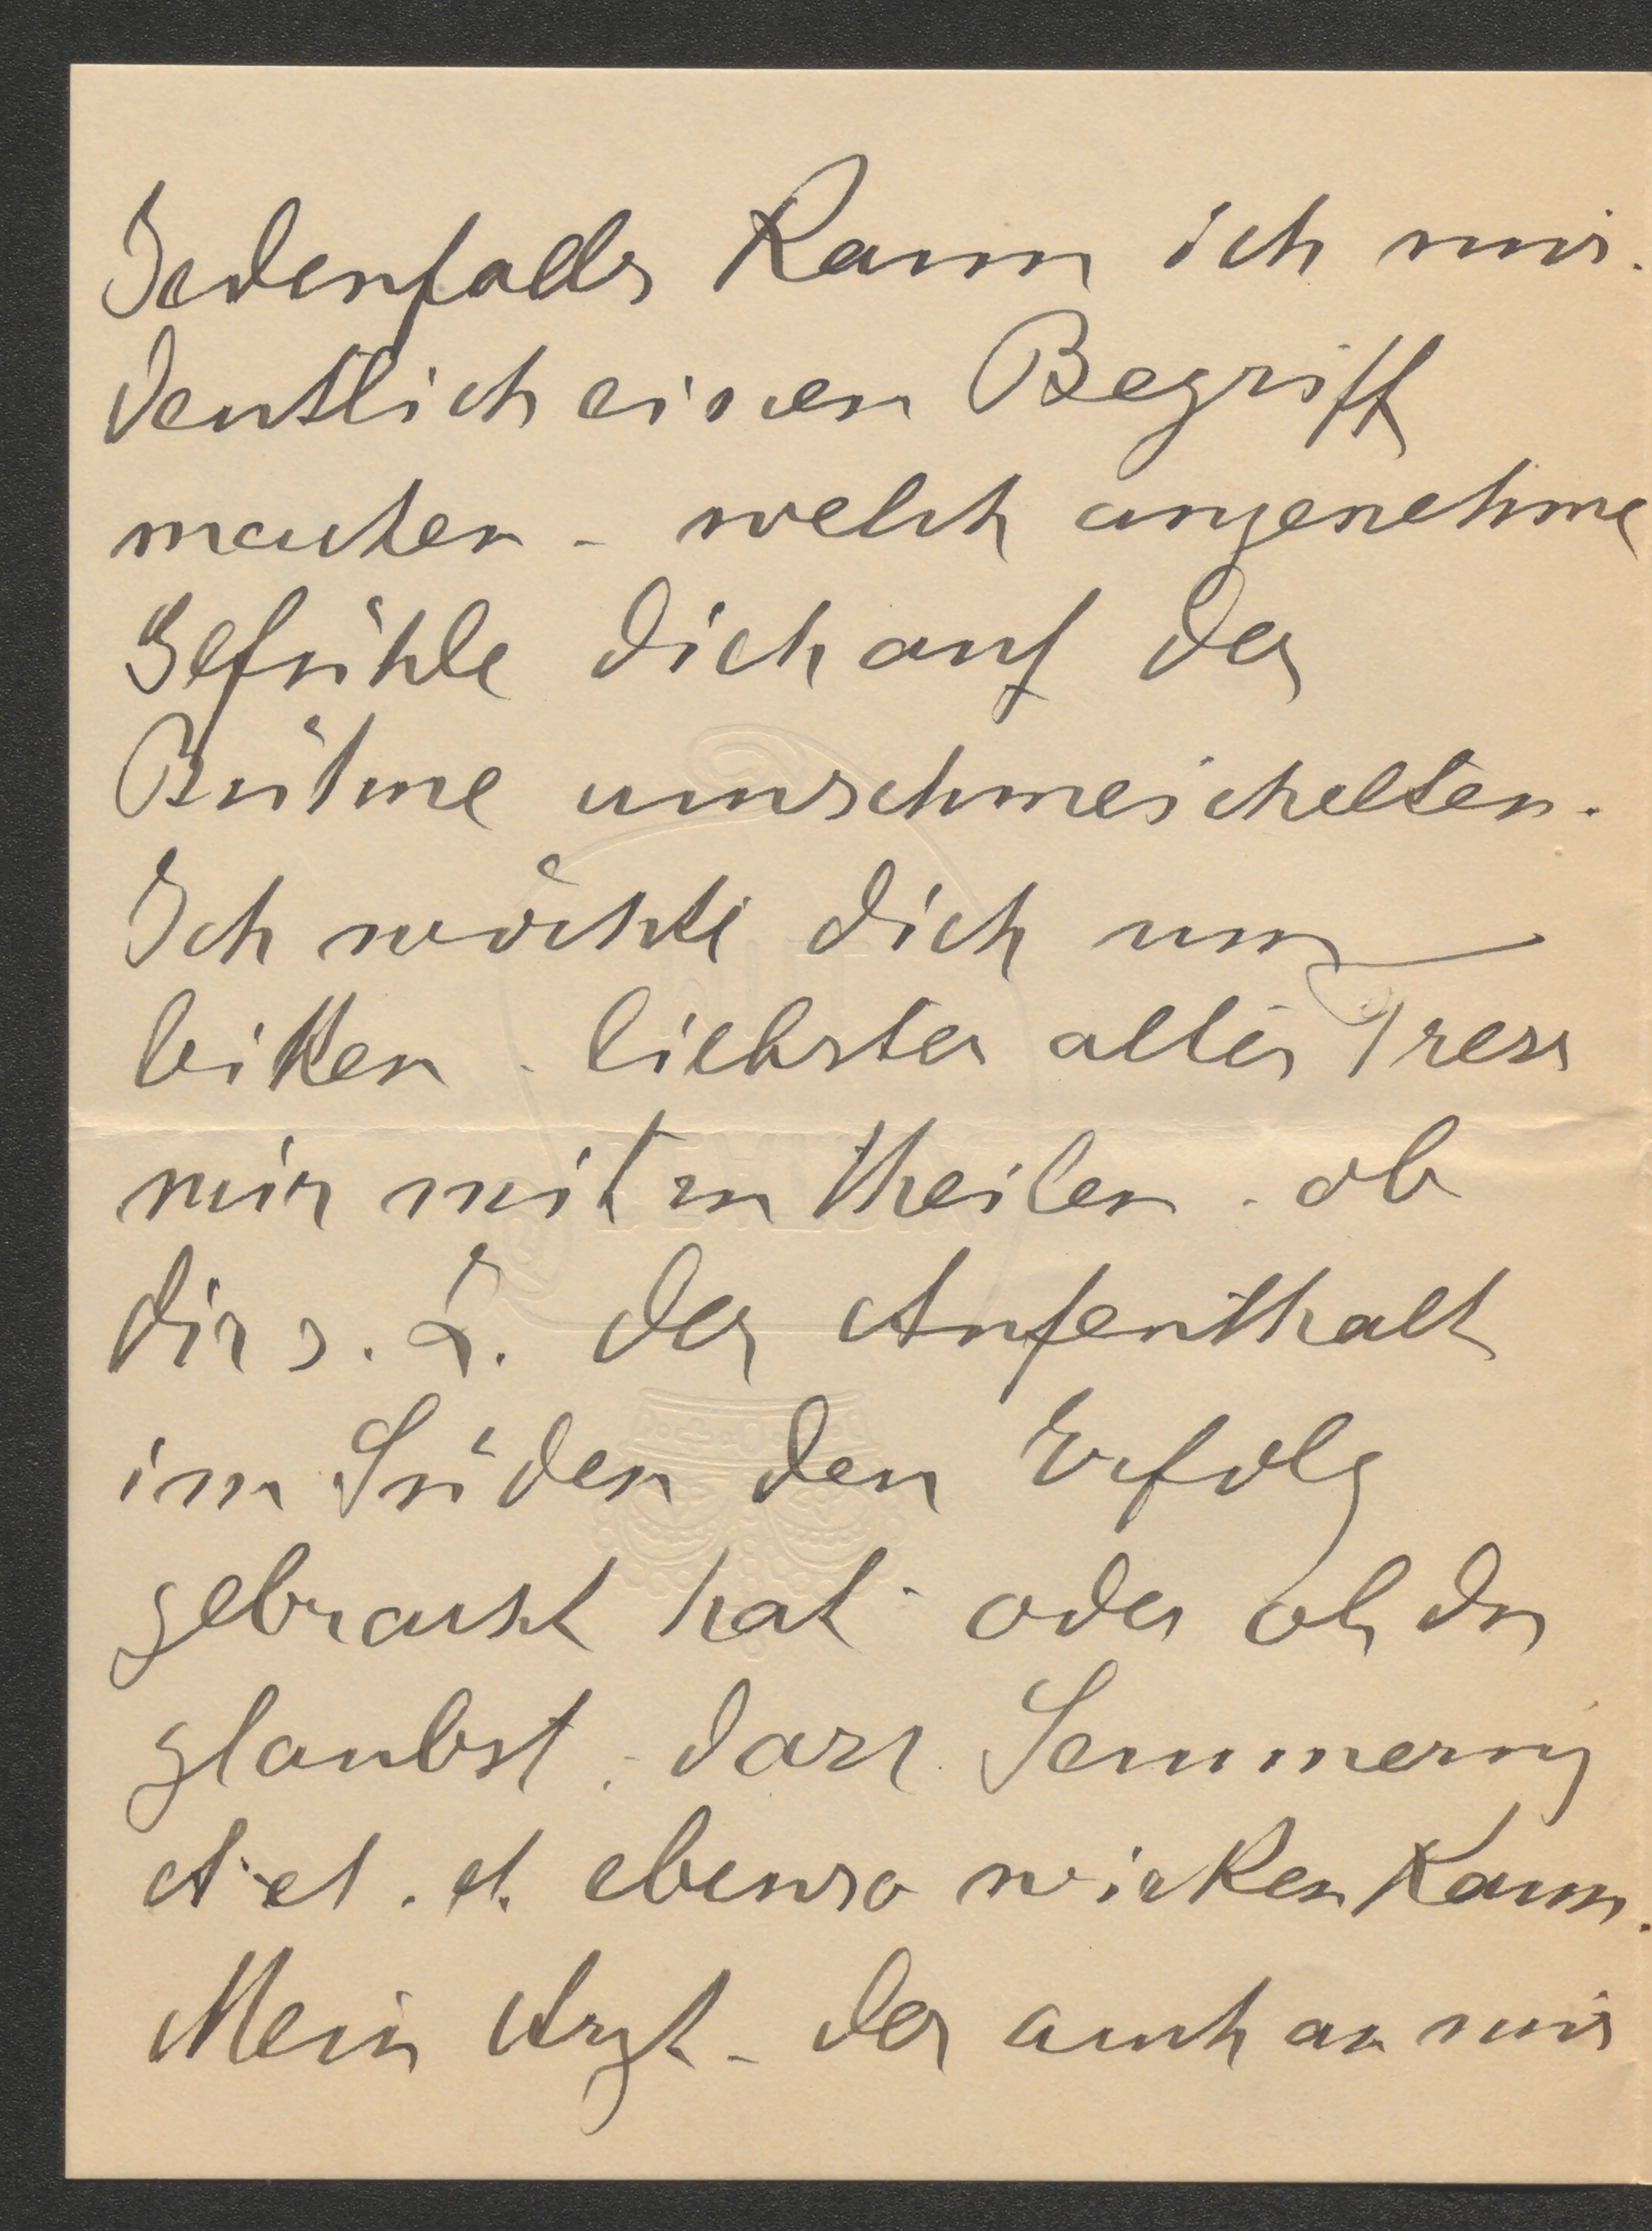 Jedenfalls kann ich mir
deutlich einen Begriff
machen - welch angenehme
Gefühle dich auf der
Bühne umschmeichelten.
Ich möchte dich nun
bitten - liebster alter
mir mitzutheilen - ob
dir s. Z. der Aufenthalt
im Süden den Erfolg
gebracht hat - oder ob du
glaubst - dass Semmering
ebenso wirken kann.
Mein Arzt - der auch an mir